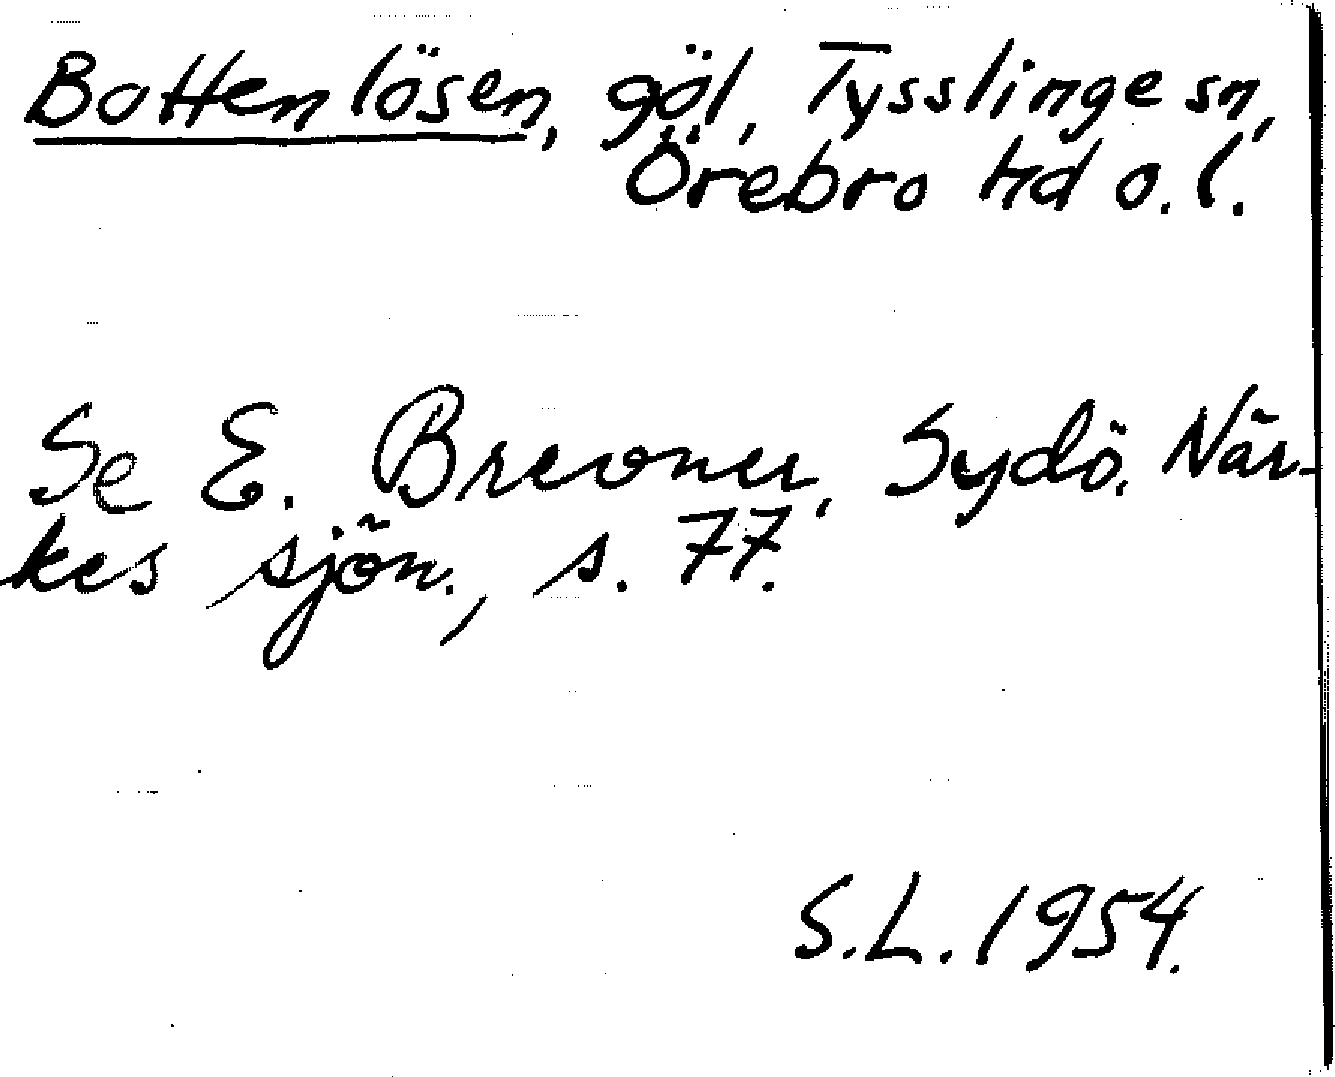 Bottenlösen, göl, Tysslinge sn,
Örebro hd o. l.
Se E. Brevner, Sydö. När-
kes sjön., s. 77.
S.L. 1954.